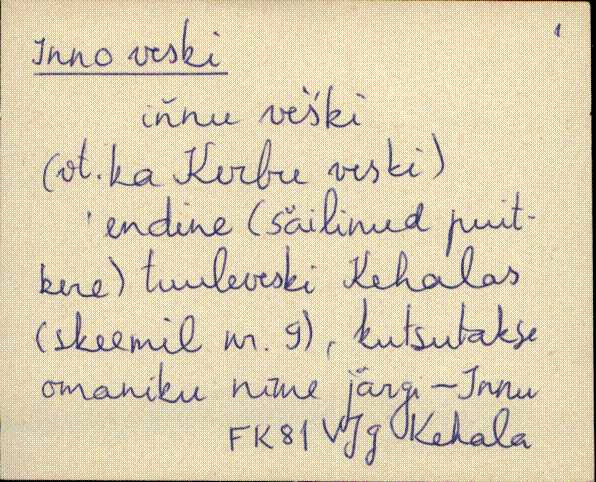 1
Inno veski
iňnu veški
(vt. ka Kurbre veski)
endine (säilinud puit-
kere) tuuleveski Kehalas
(skeemil nr. 9), kutsutakse
omaniku nime järgi – Innu
FK81 VJg Kehala